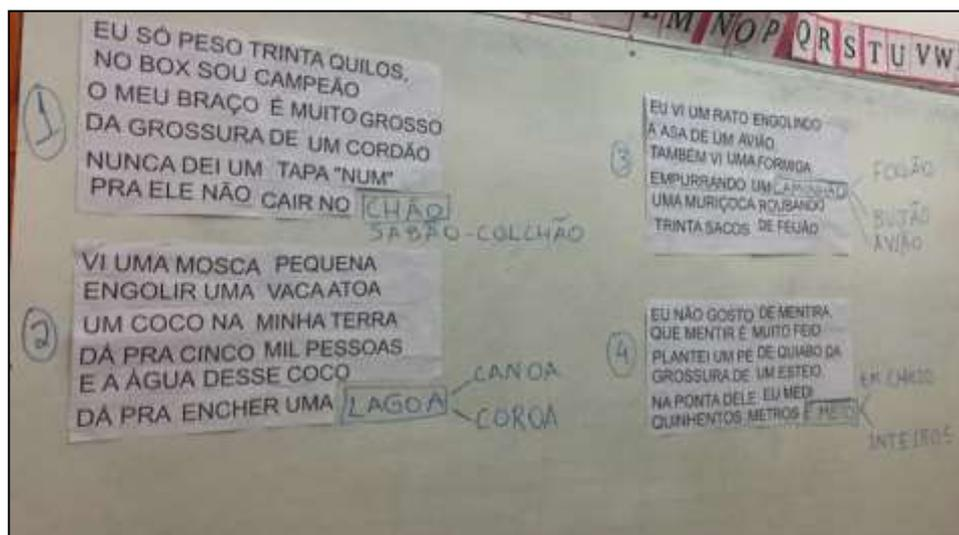 L M N O P Q R S T U V W
1
EU SÓ PESO TRINTA QUILOS,
NO BOX SOU CAMPEÃO
O MEU BRAÇO É MUITO GROSSO
DA GROSSURA DE UM CORDÃO
NUNCA DEI UM TAPA "NUM"
PRA ELE NÃO CAIR NO CHÃO
SABÃO - COLCHÃO
2
VI UMA MOSCA PEQUENA
ENGOLIR UMA VACA ATOA
UM COCO NA MINHA TERRA
DÁ PRA CINCO MIL PESSOAS
E A ÁGUA DESSE COCO
DÁ PRA ENCHER UMA LAGOA
CANOA
COROA
3
EU VI UM RATO ENGOLINDO
A ASA DE UM AVIÃO
TAMBÉM VI UMA FORMIGA
EMPURRANDO UM CAMINHÃO
UMA MURIÇOCA ROUBANDO
TRINTA SACOS DE FEIJÃO
FOGÃO
BUJÃO
AVIÃO
4
EU NÃO GOSTO DE MENTIRA,
QUE MENTIR É MUITO FEIO
PLANTEI UM PÉ DE QUIABO DA
GROSSURA DE UM ESTEIO
NA PONTA DELE EU MEDI
QUINHENTOS METROS E MEIO
EM CHEIO
INTEIROS